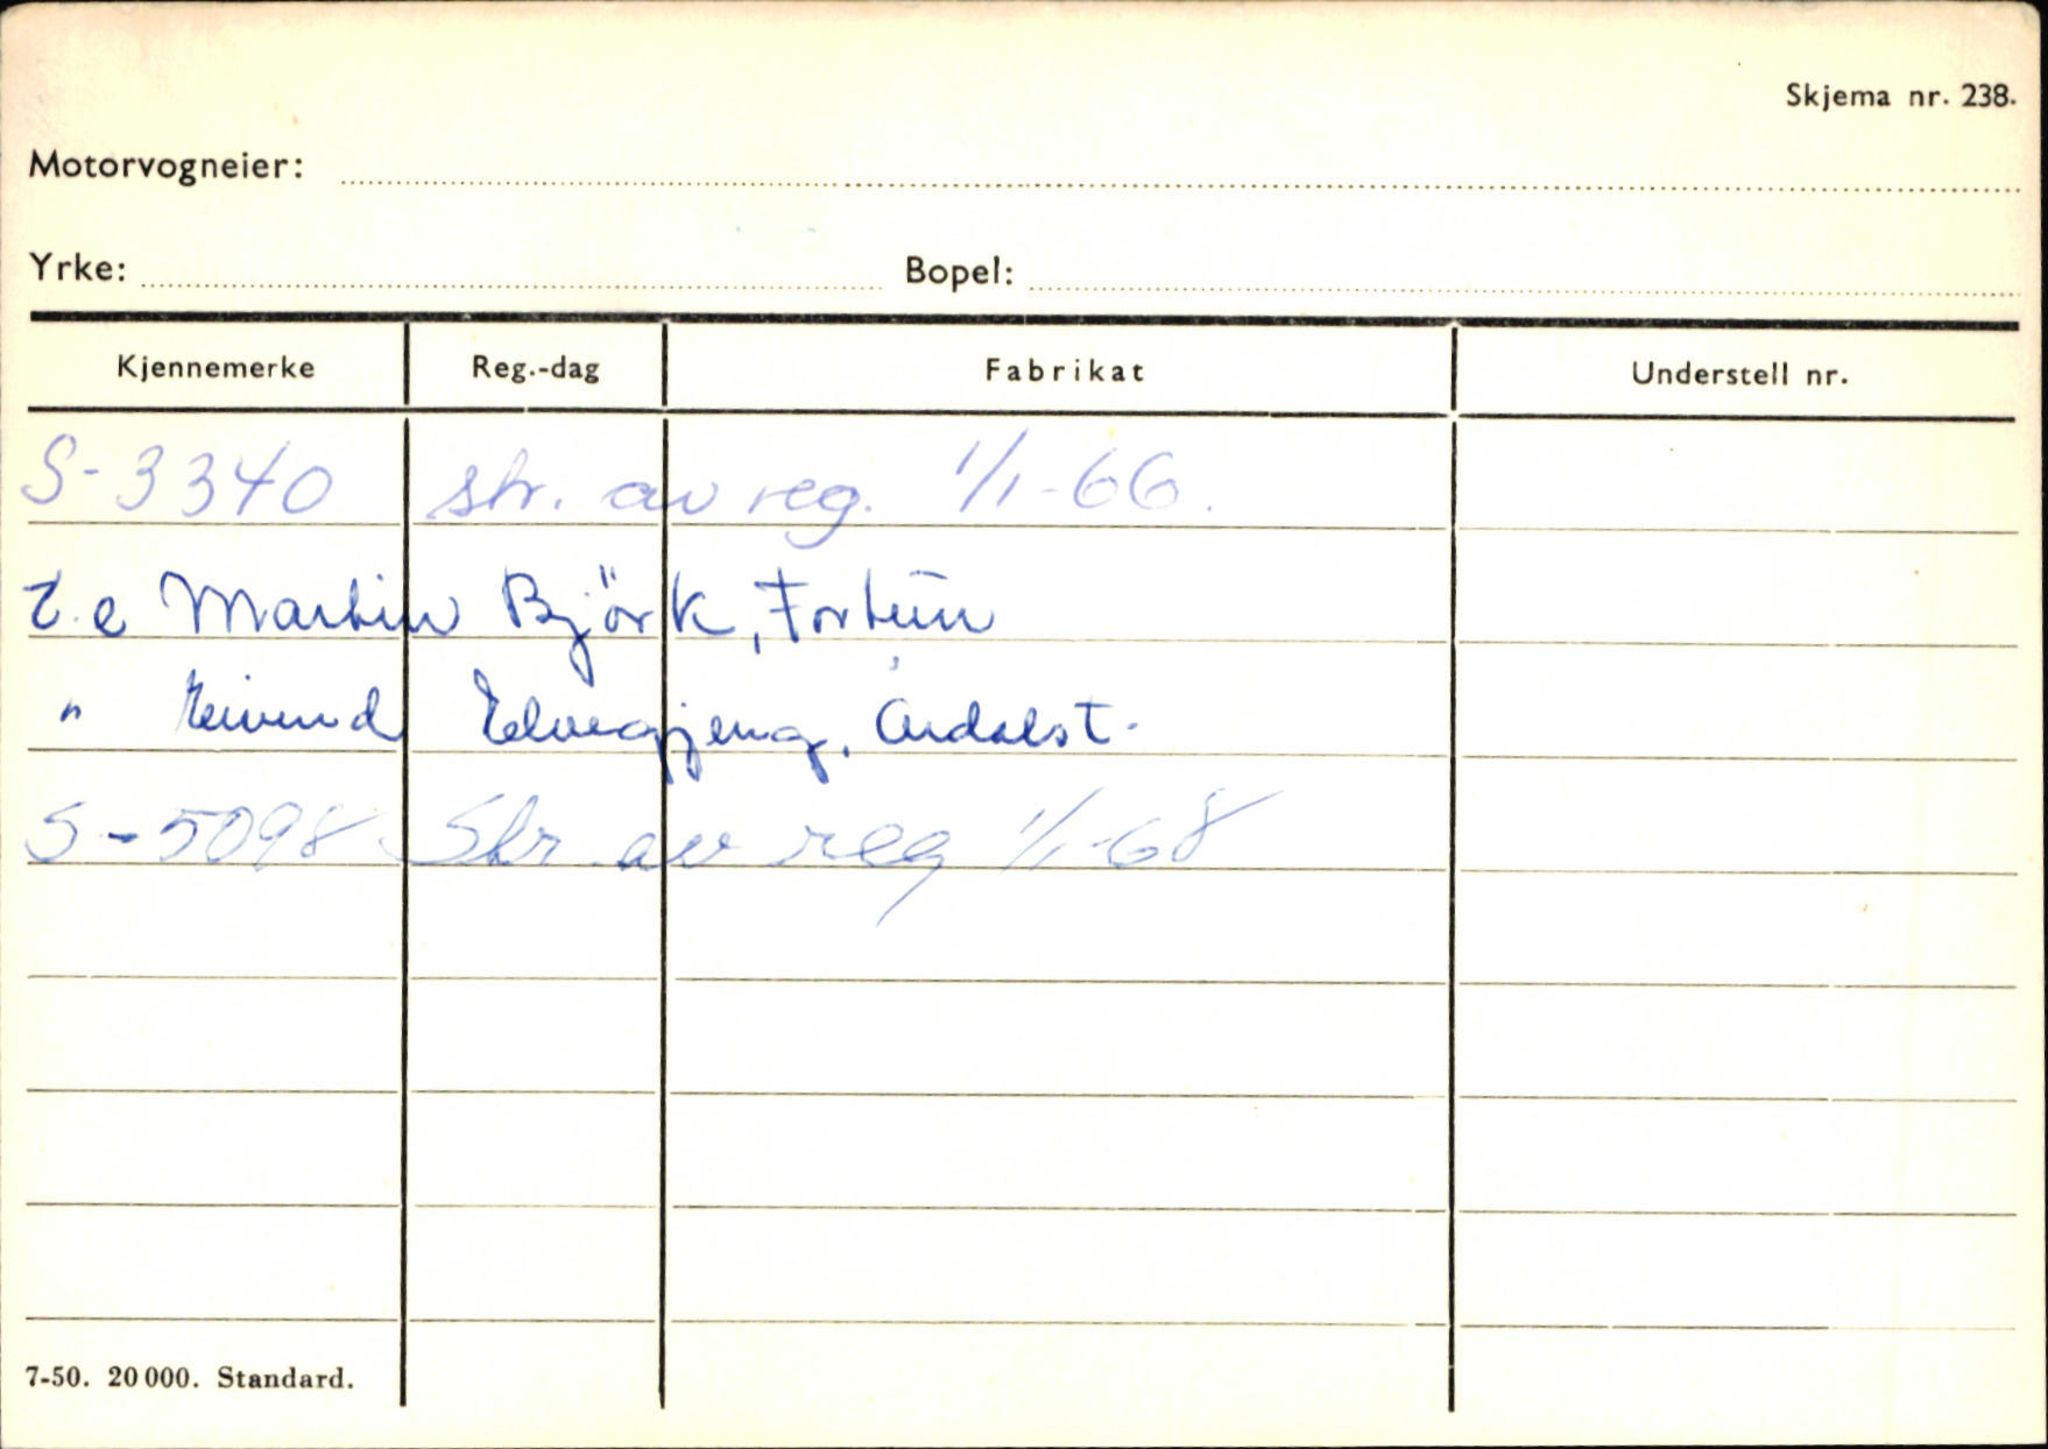 Skjema nr. 238.
Motorvogneier:
Yrke: Bopel:
Kjennemerke Reg.-dag Fabrikat Understell nr.
S-3340 str. av reg. 1/1-66.
t.e Martin Björk, Fortun
" Eivind Elvegjeng, Årdalst.
S-5098 Str. av reg 1/1-68
7-50. 20 000. Standard.